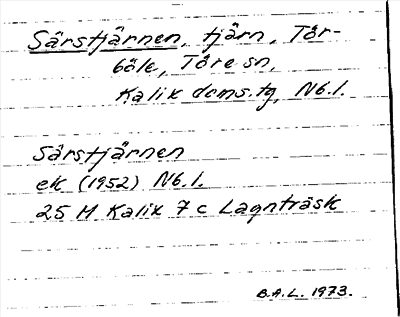 Särstjärnen, tjärn, Tör-
böle, Töre sn,
Kalix doms.tg, Nb.l.
Särstjärnen
ek (1952) Nb.l.
25 M Kalix 7 c Lagnträsk
B.A.L. 1973.